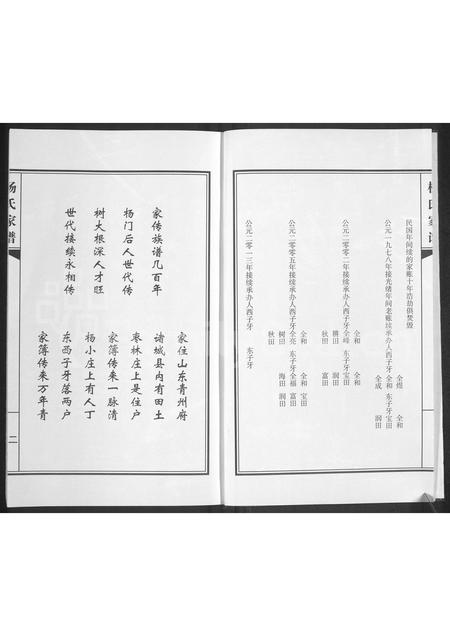 民国年间续的家账十年浩劫俱焚毁
公元一九七八年接光绪年间老账续承办人西子牙
全煜
全和
全成
东子牙
全和
宝田
润田
公元二零零二年接续承办人西子牙
全峰
全和
耩田
秋田
东子牙
宝田
润田
富田
公元二零零五年接续承办人西子牙
全亮
全和
树田
秋田
东子牙
全福
宝田
海田
富田
润田
公元二零一三年接续承办人西子牙
东子牙
家住山东青州府
诸城县内有田土
枣林庄上是住户
家簿传来一脉清
杨小庄上有人丁
东西子牙落两户
家簿传来万年青
家传族谱几百年
杨门后人世代传
树大根深人才旺
世代接续永相传
杨氏家谱
二